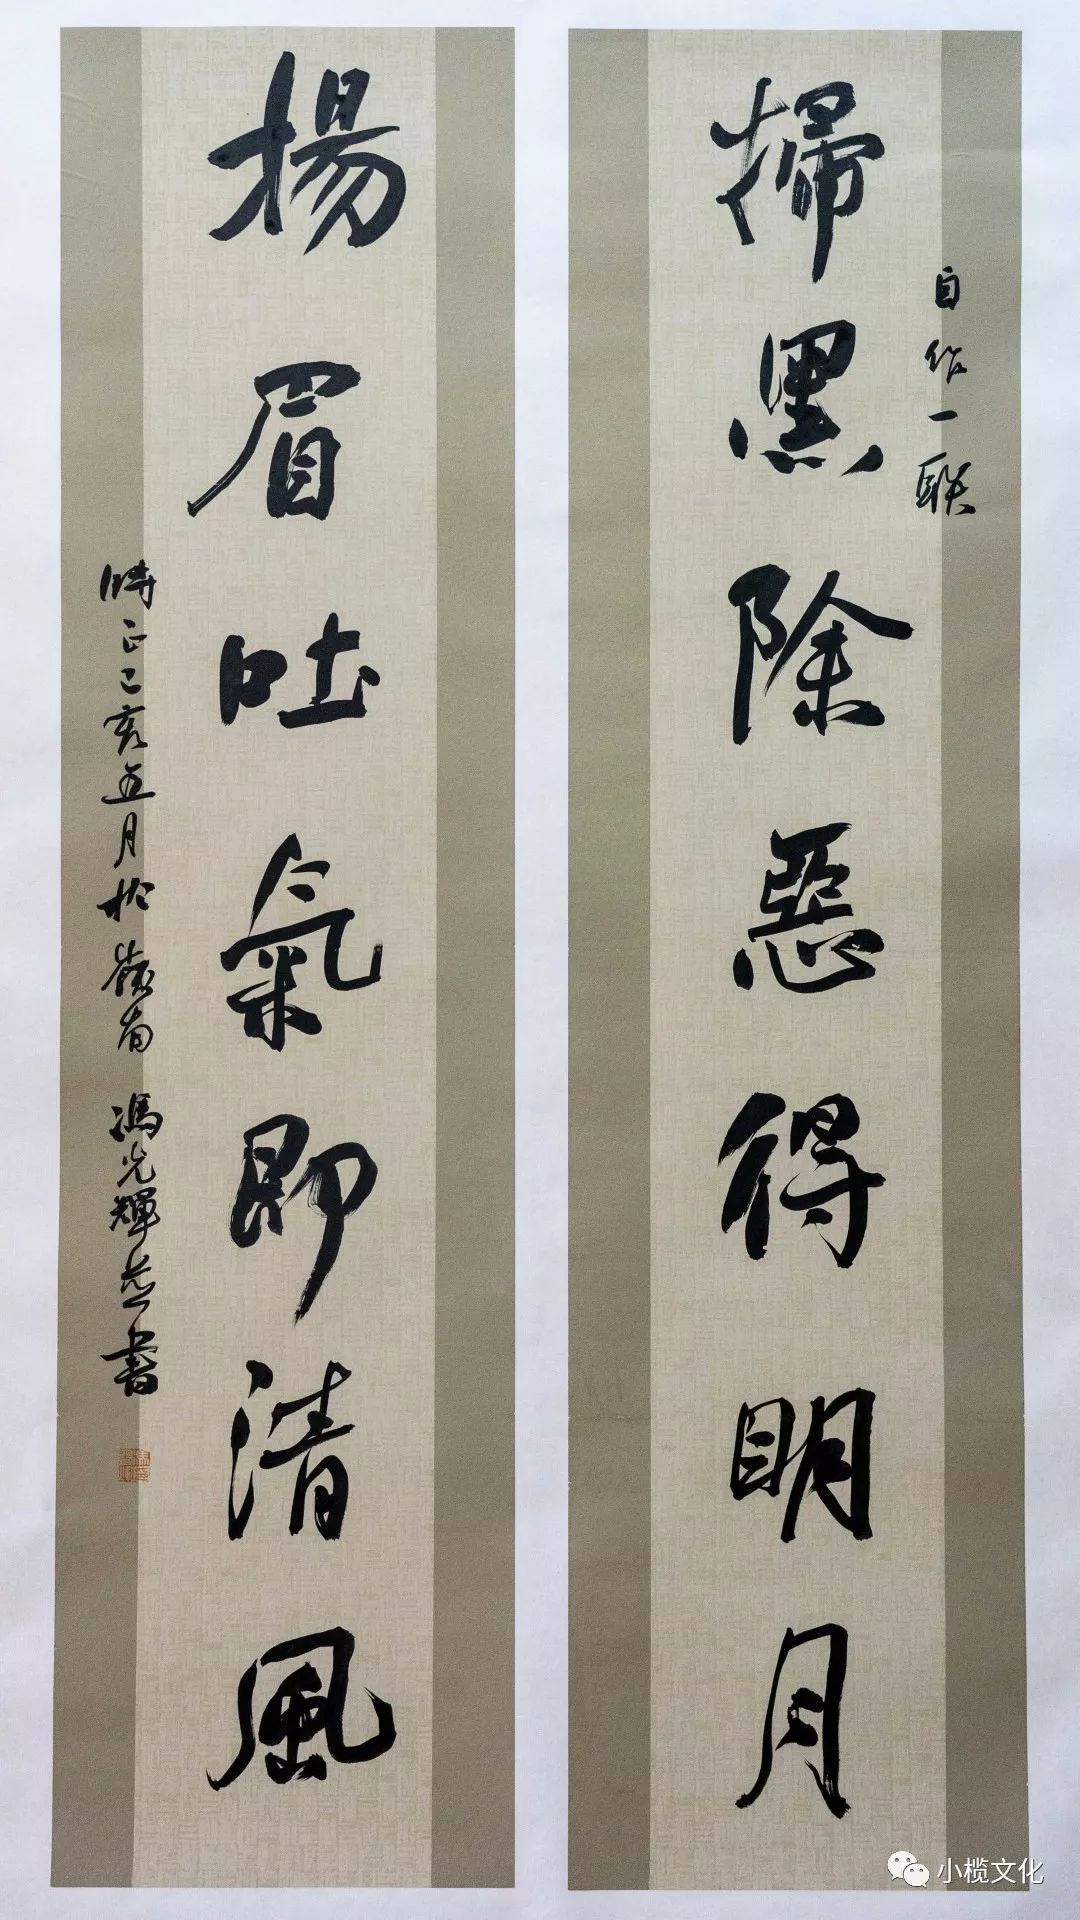 自作一联
掃黑除惡得明月
揚眉吐氣即清風
時在己亥五月於嶺南 馮光輝并書
小榄文化